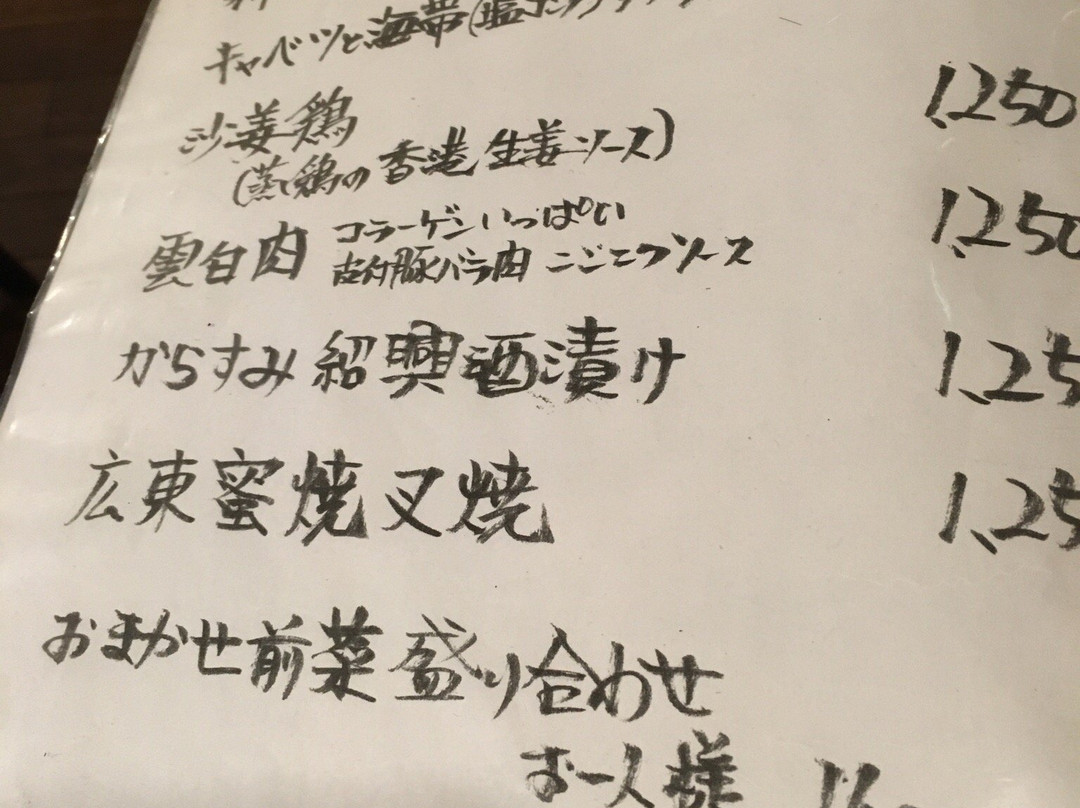 キャベツと海帯(塩
沙姜鶏 1,250
(蒸し鶏の香港生姜ソース)
雲白肉 コラーゲンいっぱい 1,250
皮付豚バラ肉 にんにくソース
からすみ紹興酒漬け 1,25
広東蜜焼叉焼 1,25
おまかせ前菜盛り合わせ
お一人様